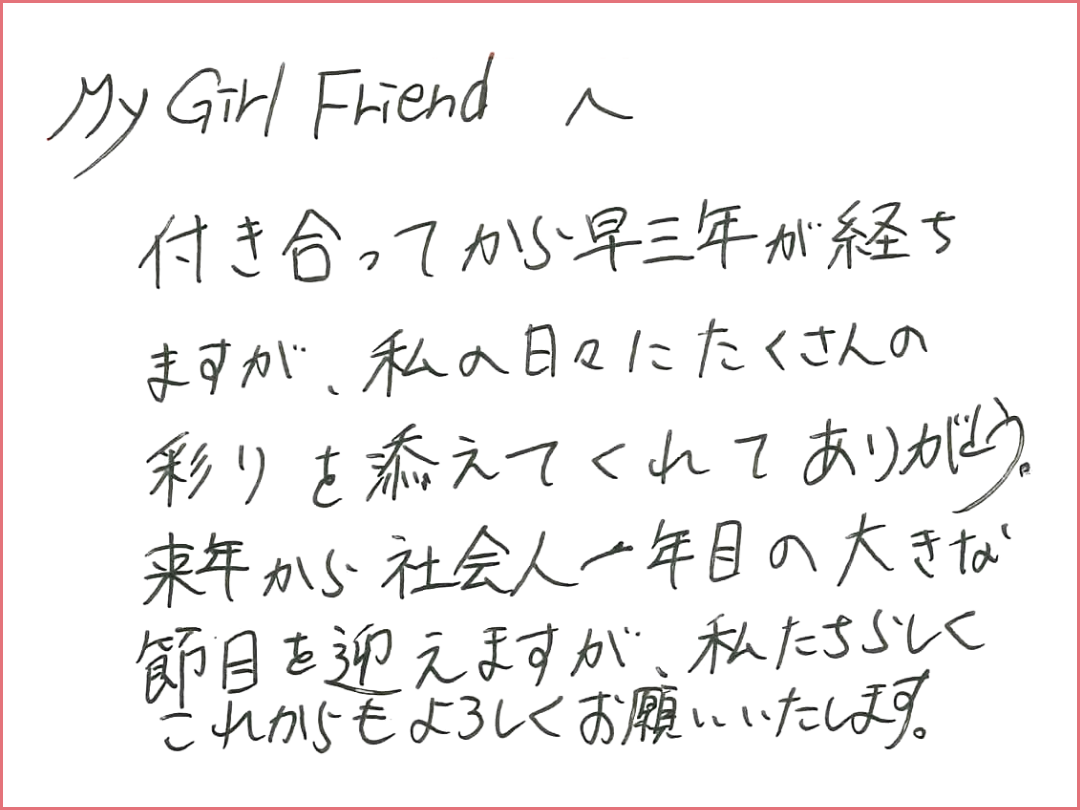 My Girl Friend へ
付き合ってから早三年が経ち
ますが、私の日々にたくさんの
彩りを添えてくれてありがとう。
来年から社会人一年目の大きな
節目を迎えますが、私たちらしく
これからもよろしくお願いいたします。